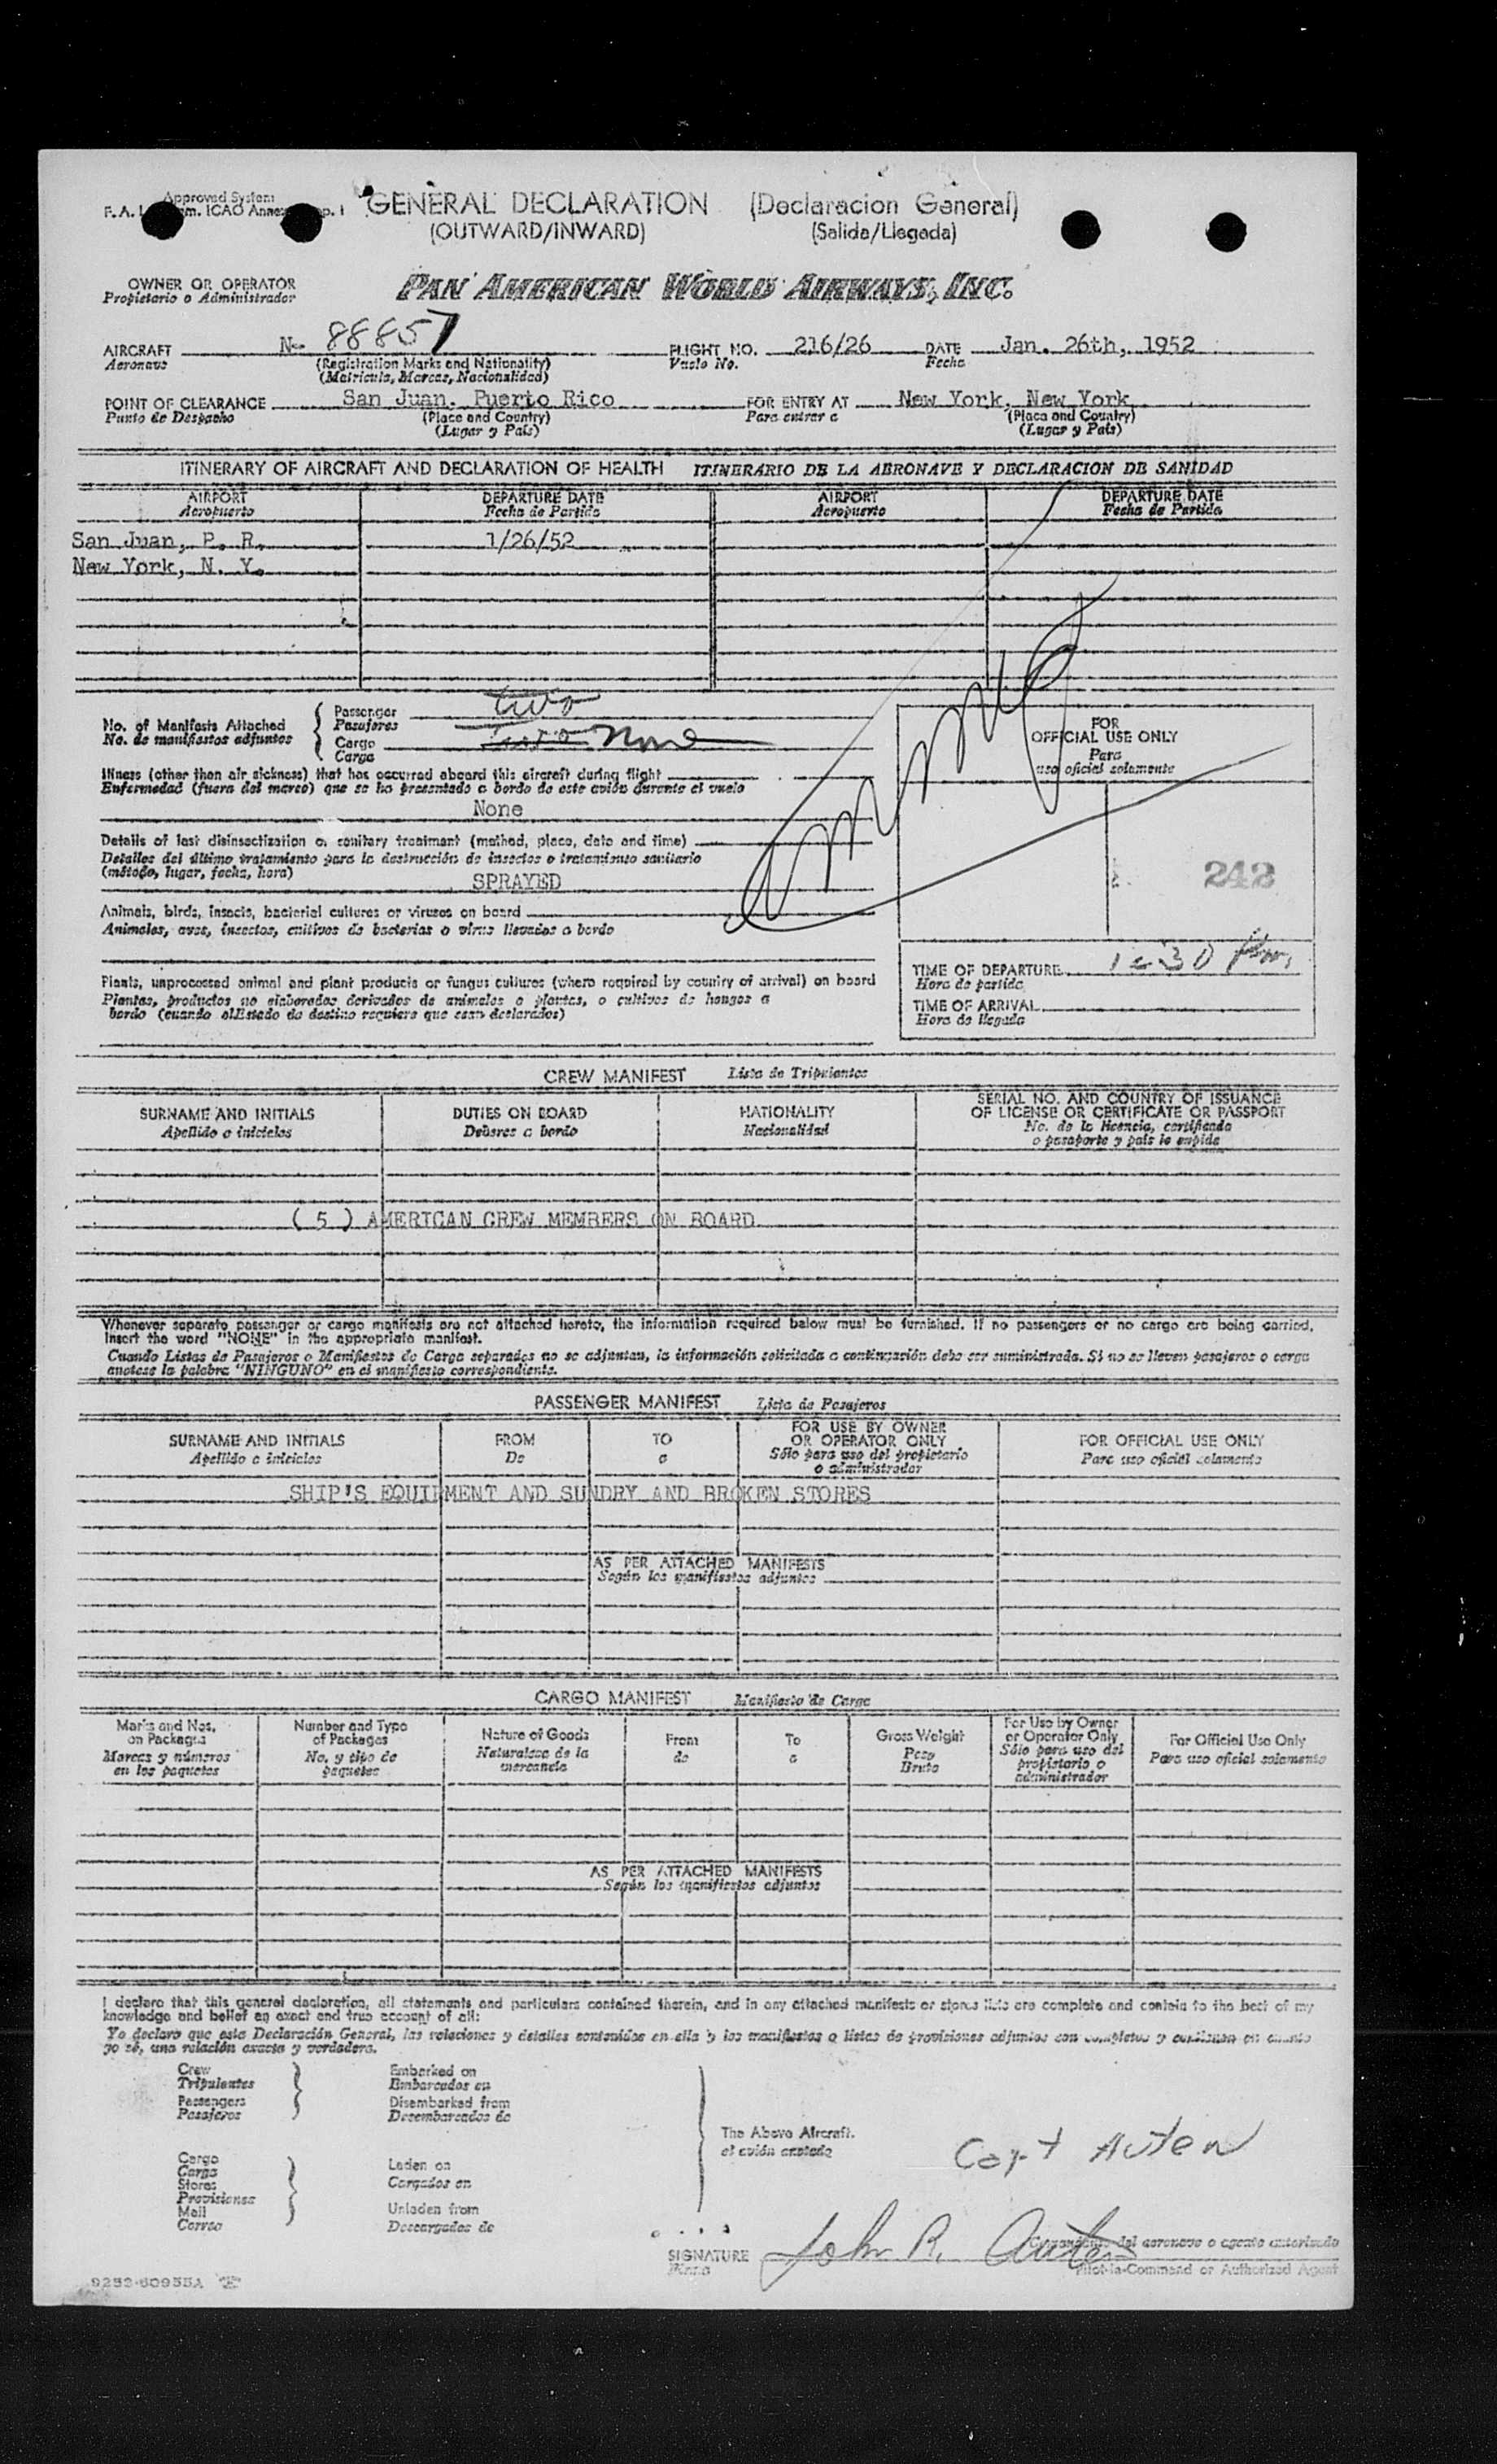 Approved System
GENERAL DECLARATION (Declaracion General)
(OUTWARD/INWARD) (Salida/Llegada)
OWNER OR OPERATOR
Propietario o Administrador
PAN AMERICAN WORLD AIRWAYS, INC.
AIRCRAFT N- 88857 FLIGHT NO. 216/26 DATE Jan. 26th, 1952
Aeronave (Registration Marks and Nationality) Vuelo No. Fecha
(Matricula, Marcas, Nacionalidad)
POINT OF CLEARANCE San Juan, Puerto Rico FOR ENTRY AT New York, New York
Punto de Despacho (Place and Country) Para entrar a (Place and Country)
(Lugar y País) (Lugar y País)
ITINERARY OF AIRCRAFT AND DECLARATION OF HEALTH ITINERARIO DE LA AERONAVE Y DECLARACION DE SANIDAD
AIRPORT DEPARTURE DATE AIRPORT DEPARTURE DATE
Aeropuerto Fecha de Partida Aeropuerto Fecha de Partida
San Juan, P. R. 1/26/52
New York, N. Y.
No. of Manifests Attached
No. de manifiestos adjuntos
Passenger two
Pasajeros
Cargo Two None
Carga
Illness (other than air sickness) that has occurred aboard this aircraft during flight
Enfermedad (fuera del mareo) que se ha presentado a bordo de este avión durante el vuelo
None
Details of last disinsectization or sanitary treatment (method, place, date and time)
Detalles del último tratamiento para la destrucción de insectos o tratamiento sanitario
(método, lugar, fecha, hora)
SPRAYED
Animals, birds, insects, bacterial cultures or viruses on board
Animales, aves, insectos, cultivos de bacterias o virus llevados a bordo
Plants, unprocessed animal and plant products or fungus cultures (where required by country of arrival) on board
Plantas, productos no elaborados derivados de animales o plantas, o cultivos de hongos a
bordo (cuando el Estado de destino requiera que sean declarados)
FOR
OFFICIAL USE ONLY
Para
uso oficial solamente
242
TIME OF DEPARTURE 1230 Pm.
Hora de partida
TIME OF ARRIVAL
Hora de llegada
CREW MANIFEST Lista de Tripulantes
SURNAME AND INITIALS DUTIES ON BOARD NATIONALITY SERIAL NO. AND COUNTRY OF ISSUANCE
OF LICENSE OR CERTIFICATE OR PASSPORT
Apellido e iniciales Deberes a bordo Nacionalidad No. de la licencia, certificado
o pasaporte y país le expide
( 5 ) AMERICAN CREW MEMBERS ON BOARD
Whenever separate passenger or cargo manifests are not attached hereto, the information required below must be furnished. If no passengers or no cargo are being carried,
insert the word "NONE" in the appropriate manifest.
Cuando Listas de Pasajeros o Manifiestos de Carga separados no se adjuntan, la información solicitada a continuación debe ser suministrada. Si no se lleven pasajeros o carga
anotese la palabra "NINGUNO" en el manifiesto correspondiente.
PASSENGER MANIFEST Lista de Pasajeros
SURNAME AND INITIALS FROM TO FOR USE BY OWNER
OR OPERATOR ONLY FOR OFFICIAL USE ONLY
Apellido e iniciales De a Sólo para uso del propietario
o administrador Para uso oficial solamente
SHIP'S EQUIPMENT AND SUNDRY AND BROKEN STORES
AS PER ATTACHED MANIFESTS
Según los manifiestos adjuntos
CARGO MANIFEST Manifiesto de Carga
Marks and Nos.
on Packages
Marcas y números
en los paquetes
Number and Type
of Packages
No. y tipo de
paquetes
Nature of Goods
Naturaleza de la
mercancía
From
de
To
a
Gross Weight
Peso
Bruto
For Use by Owner
or Operator Only
Sólo para uso del
propietario o
administrador
For Official Use Only
Para uso oficial solamente
AS PER ATTACHED MANIFESTS
Según los manifiestos adjuntos
I declare that this general declaration, all statements and particulars contained therein, and in any attached manifests or stores lists are complete and contain to the best of my
knowledge and belief an exact and true account of all:
Yo declaro que esta Declaración General, las relaciones y detalles contenidos en ella y los manifiestos o listas de provisiones adjuntos son completos y contienen en cuanto
yo sé, una relación exacta y verdadera.
Crew
Tripulantes
Passengers
Pasajeros
Embarked on
Embarcados en
Disembarked from
Desembarcados de
Cargo
Carga
Stores
Provisiones
Mail
Correo
Laden on
Cargados en
Unladen from
Descargados de
The Above Aircraft.
el avión anotado
Capt Auten
SIGNATURE John R. Auten
Firma
Comandante del aeronave o agente autorizado
Pilot-in-Command or Authorized Agent
9252-60955A